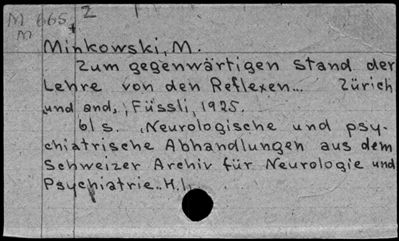 M 665, 2
M
Minkowski, M.
Zum gegenwärtigen stand der
Lehre von den Reflexen... Zürich
und and., Füssli, 1925.
61 s. Neurologische und psy-
chiatrische Abhandlungen aus dem
Schweizer Archiv für Neurologie und
Psychiatrie.. H.1.